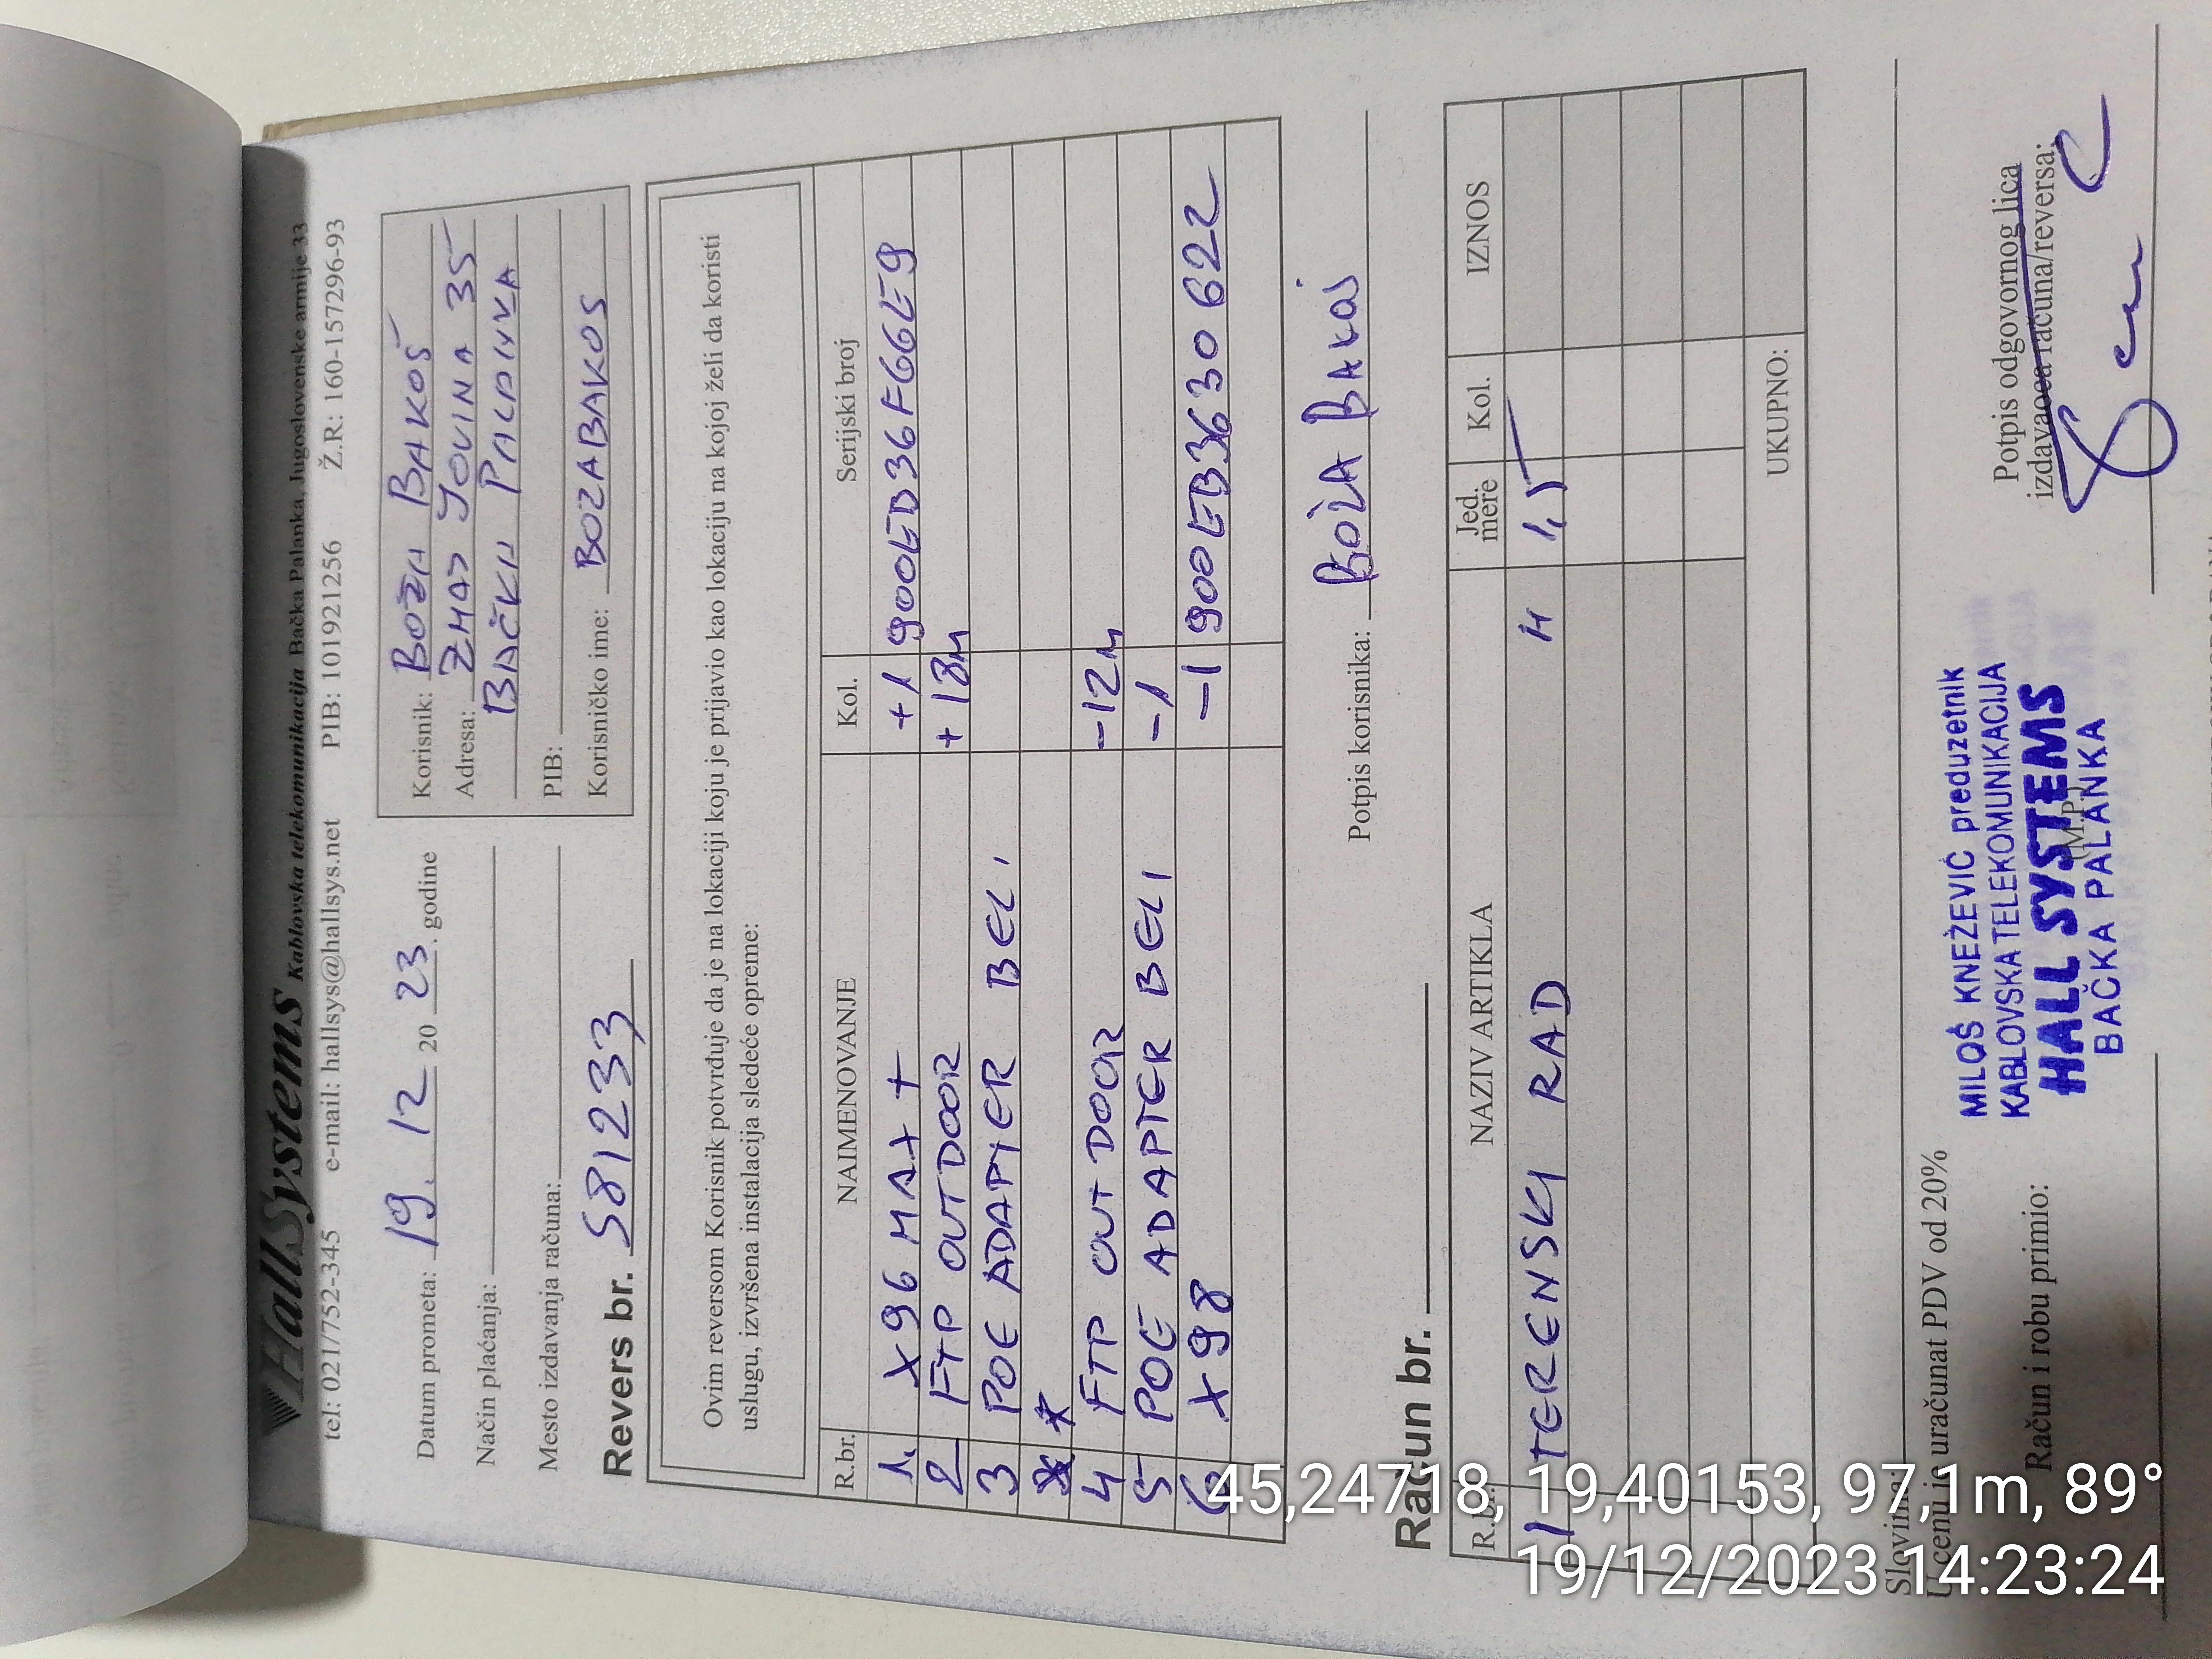 HallSystems Kablovska telekomunikacija Bačka Palanka, Jugoslovenske armije 33
tel: 021/752-345 e-mail: hallsys@hallsys.net PIB: 101921256 Ž.R: 160-157296-93
Datum prometa: 19. 12 20 23. godine
Način plaćanja:
Mesto izdavanja računa:
Revers br. 581233
Korisnik: BOŽA BAKOŠ
Adresa: ZMAJ JOVINA 35
BAČKA PALANKA
PIB:
Korisničko ime: BOZABAKOS
Ovim reversom Korisnik potvrđuje da je na lokaciji koju je prijavio kao lokaciju na kojoj želi da koristi
uslugu, izvršena instalacija sledeće opreme:
R.br. NAIMENOVANJE Kol. Serijski broj
1. X96 MAX + +1 900EB36F66LE9
2 FTP OUTDOOR +18m
3 POE ADAPTER BELI
4 FTP OUTDOOR -12m
5 POE ADAPTER BELI -1
6 X98 -1 900EB3630622
Potpis korisnika: BOŽA BAKOŠ
Račun br.
R.br. NAZIV ARTIKLA Jed. mere Kol. IZNOS
1 TERENSKI RAD H 1,5
UKUPNO:
Slovima:
U cenu je uračunat PDV od 20%
Račun i robu primio:
MILOŠ KNEŽEVIĆ preduzetnik
KABLOVSKA TELEKOMUNIKACIJA
HALL SYSTEMS
(M.P.)
BAČKA PALANKA
Potpis odgovornog lica
izdavaoca računa/reversa:
45,24718, 19,40153, 97,1m, 89°
19/12/2023 14:23:24